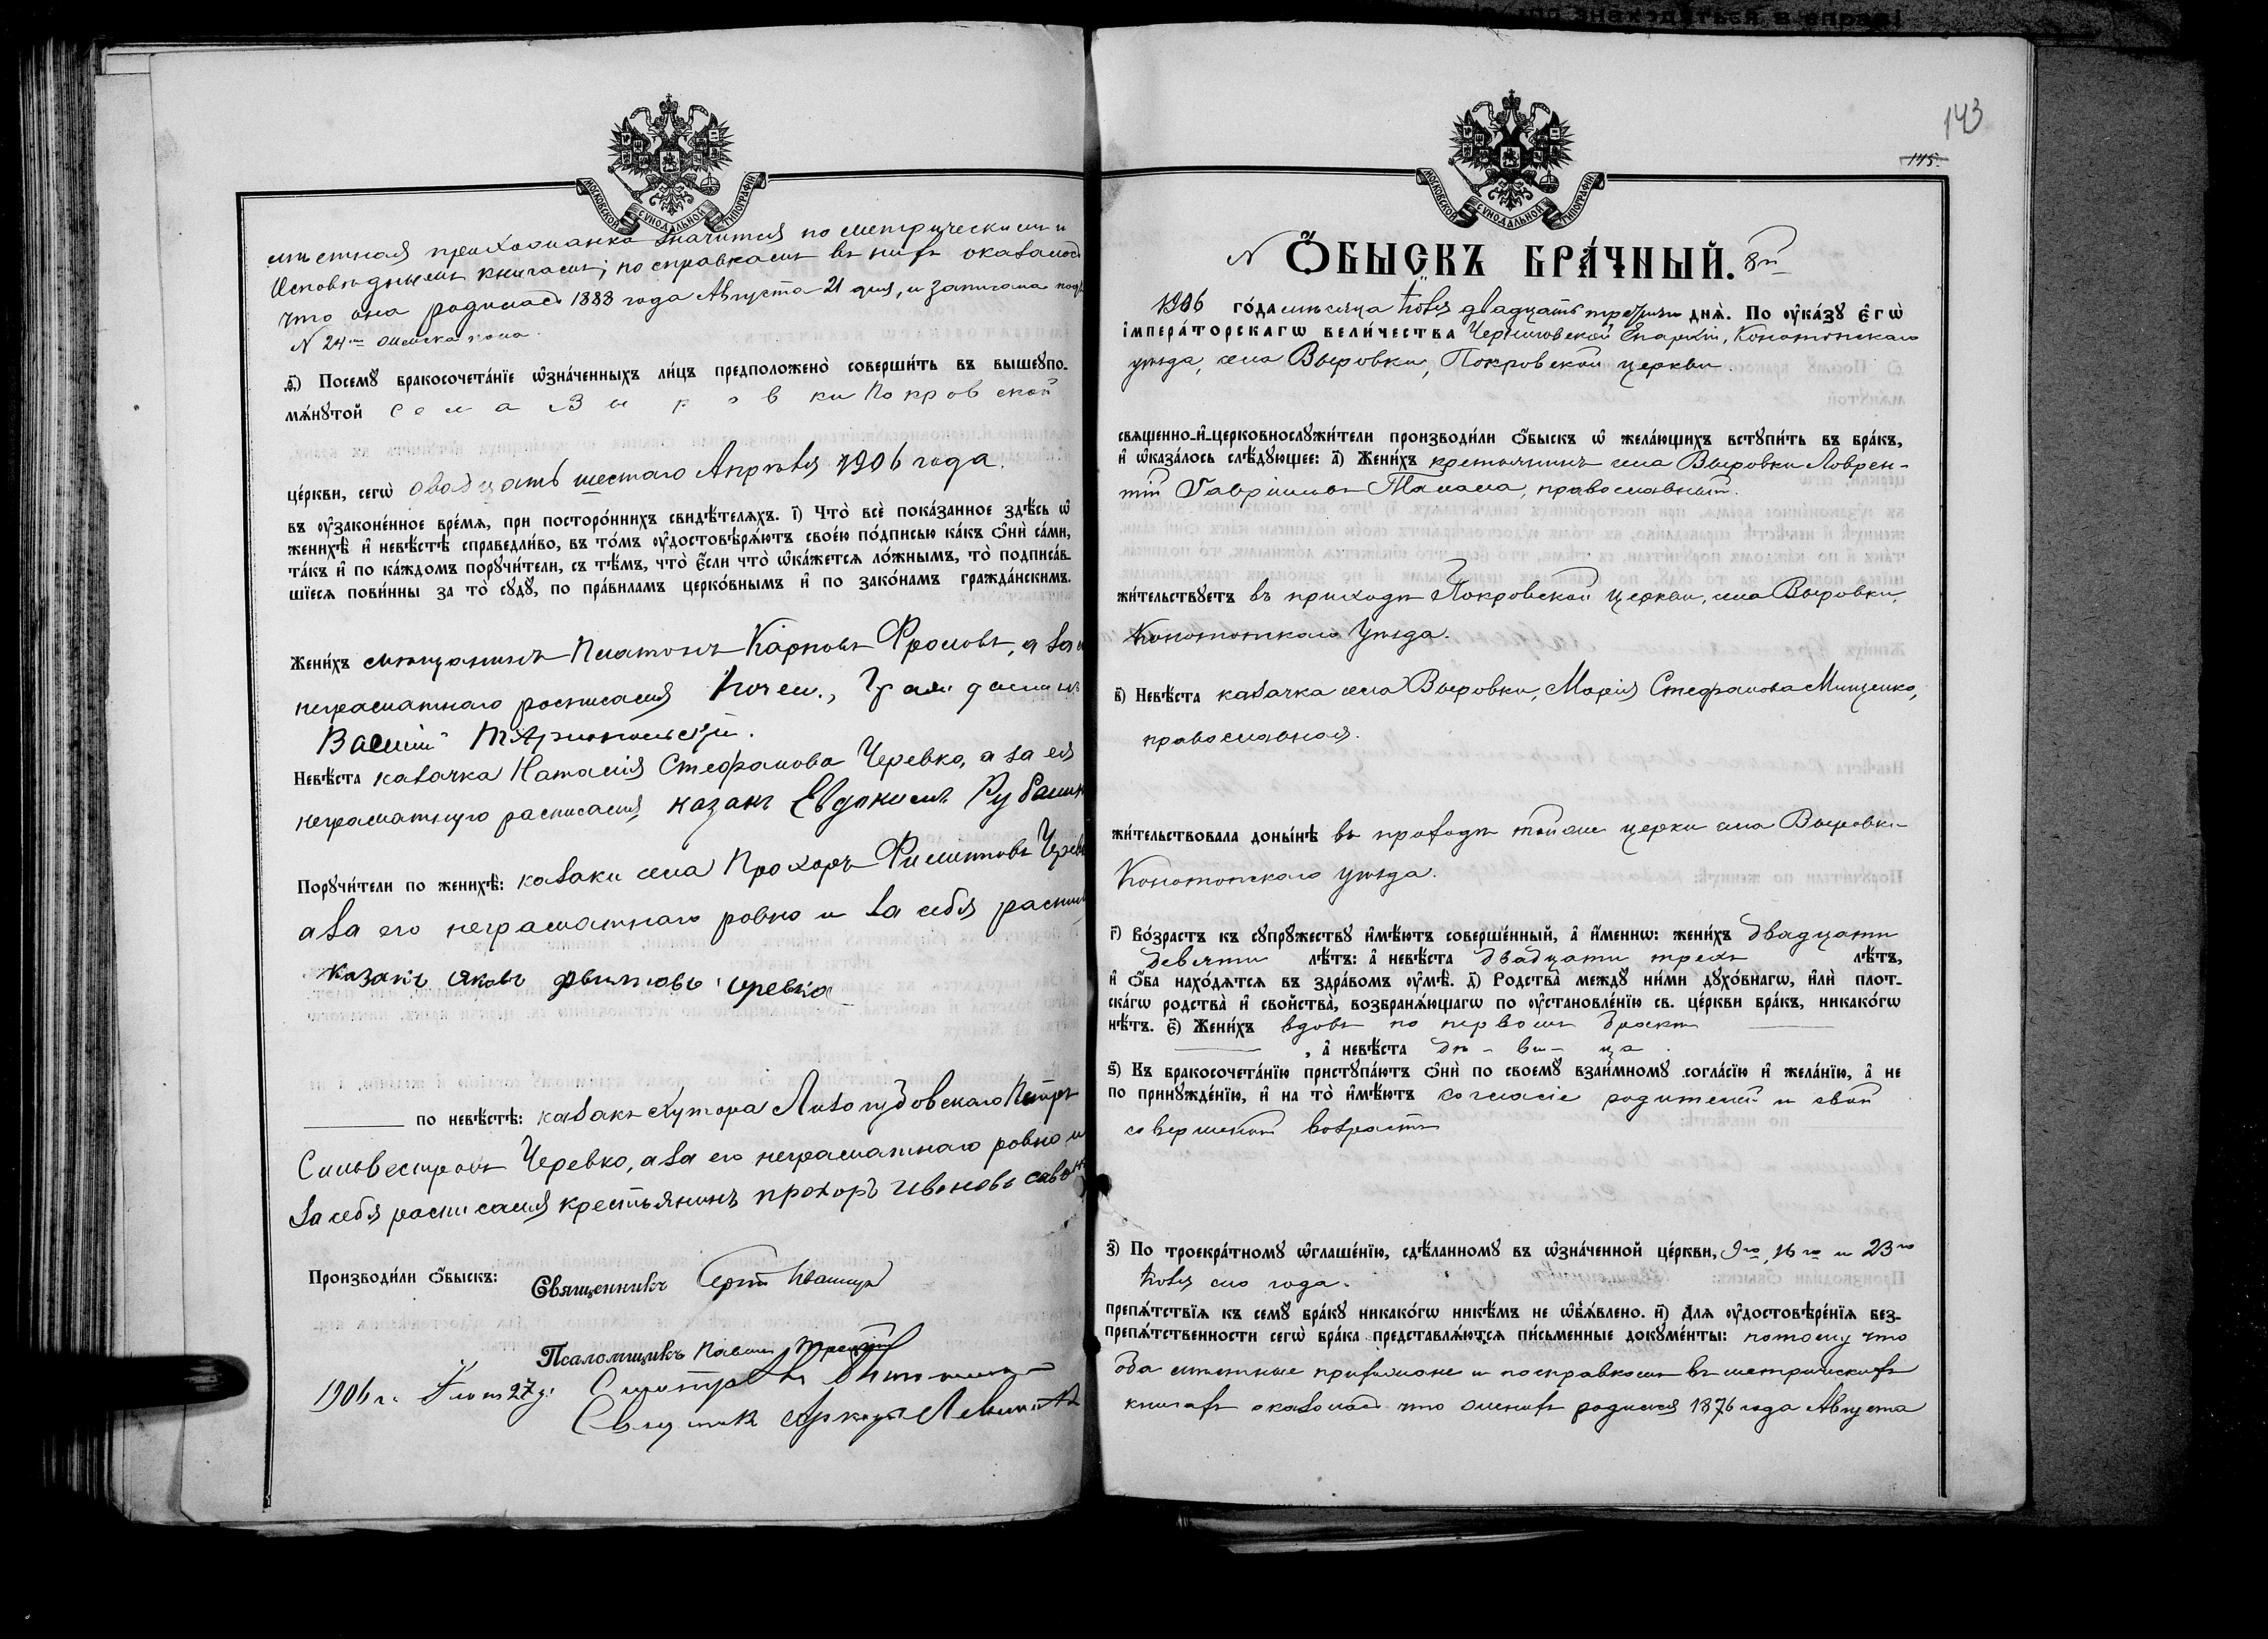 МОСКОВСКОЙ СѴНОДАЛЬНОЙ ТИПОГРАФІИ
мѣстная прихожанка значится по метрическимъ и
Исповѣднымъ книгамъ; по справкамъ въ нихъ оказалось
что она родилась 1888 года Августа 21 дня, и записана подъ
N 24 женска пола.
ѳ҃) Посемꙋ бракосочета́нїе ѡ҆зна́ченныхъ ли́цъ предположено̀ соверши́ть въ вышеꙋпо-
мѧ́нꙋтой села Выровки Покровской
це́ркви, сегѡ̀ двадцать шестаго Апрѣля 1906 года.
въ ᲂу҆законе́нное вре́мѧ, при посторо́ннихъ свидѣ́телѧхъ. і҃) Что̀ всѐ пока́занное здѣ́сь ѡ҆
женихѣ̀ и҆ невѣ́стѣ справедли́во, въ то́мъ ᲂу҆достовѣрѧ́ютъ свое́ю по́дписью ка́къ ѻ҆нѝ са́ми,
та́къ и҆ по ка́ждомъ порꙋчи́тели, съ тѣ́мъ, что̀ є҆́сли что̀ ѡ҆ка́жетсѧ ло́жнымъ, то̀ подписа́в-
шїесѧ пови́нны за то̀ сꙋдꙋ̀, по пра́виламъ церко́внымъ и҆ по зако́намъ гражда́нскимъ.
Жени́хъ мѣщанинъ Платонъ Карповъ Фроловъ, а за
неграматнаго росписался
Василій
Невѣ́ста казачка Наталія Стефанова Черевко, а за ея
неграматную расписался казакъ Евдокимъ
Порꙋчи́тели по женихѣ̀: казаки села Прохоръ Филиповъ
а за его неграматнаго ровно и за себя
казакъ Яковъ Филиповъ Черевко
по невѣ́стѣ: казакъ хутора Лизогубовскаго Петръ
Сильвестровъ Черевко, а за его неграматнаго ровно и
за себя росписался крестьянинъ Прохоръ Ивановъ
Производи́ли ѻ҆́быскъ: Священникъ Сергій
Псаломщикъ Павелъ
1906 г. 27 д.
143
175
МОСКОВСКОЙ СѴНОДАЛЬНОЙ ТИПОГРАФІИ
N ѺБЫСКЪ БРА́ЧНЫЙ. 8й
1906 го́да мѣсяца Іюля двадцать третьяго днѧ̀. По ᲂу҆ка́зꙋ Є҆гѡ̀
і҆мпера́торскагѡ вели́чества Черниговской Епархіи, Конотопскаго
уѣзда, села Выровки, Покровской церкви
священно-и҆-церковнослꙋжи́тели производи́ли ѻ҆́быскъ ѡ҆ жела́ющихъ встꙋпи́ть въ бра́къ,
и҆ ѡ҆каза́лось слѣ́дꙋющее: а҃) Жени́хъ крестьянинъ села Выровки Лаврен-
тій Гавріиловъ Талала, православный.
жи́тельствꙋетъ въ приходѣ Покровской церкви, села Выровки,
Конотопскаго Уѣзда.
в҃) Невѣ́ста казачка села Выровки, Марія Стефанова Мищенко,
православная.
жи́тельствовала доны́нѣ въ приходѣ той же церкви села Выровки
Конотопскаго уѣзда.
г҃) Во́зрастъ къ сꙋпрꙋ́жествꙋ и҆мѣ́ютъ соверше́нный, а҆ и҆́меннѡ: жени́хъ двадцати
девяти лѣ́тъ: а҆ невѣ́ста двадцати трехъ лѣ́тъ,
и҆ ѻ҆́ба нахо́дѧтсѧ въ здра́вомъ ᲂу҆мѣ̀. д҃) Родства̀ междꙋ̀ ни́ми дꙋхо́внагѡ, и҆лѝ плот-
ска́гѡ родства̀ и҆ сво́йства̀, возбранѧ́ющагѡ по ᲂу҆становле́нїю св. це́ркви бра́къ, никако́гѡ
нѣ́тъ. є҃) Жени́хъ вдовъ по первомъ бракѣ
, а҆ невѣ́ста дѣ-ви-ца.
ѕ҃) Къ бракосочета́нїю пристꙋпа́ютъ ѻ҆нѝ по своемꙋ̀ взаи́мномꙋ согла́сїю и҆ жела́нїю, а҆ не
по принꙋжде́нїю, и҆ на то̀ и҆мѣ́ютъ согласіе родителей и свой
совершенный возрастъ
з҃) По троекра́тномꙋ ѡ҆глаше́нїю, сдѣ́ланномꙋ въ ѡ҆зна́ченной це́ркви, 9го, 16го и 23го
Іюля сего года.
препѧ́тствїѧ къ семꙋ̀ бра́кꙋ никако́гѡ никѣ́мъ не ѡ҆б̾ѧ́влено. и҃) Длѧ ᲂу҆достовѣре́нїѧ без-
препѧ́тственности сегѡ̀ бра́ка представлѧ́ютсѧ пи́сьменные докꙋме́нты: потому что
оба мѣстные прихожане и по справкамъ въ метрическихъ
книгахъ оказалось что женихъ родился 1876 года Августа